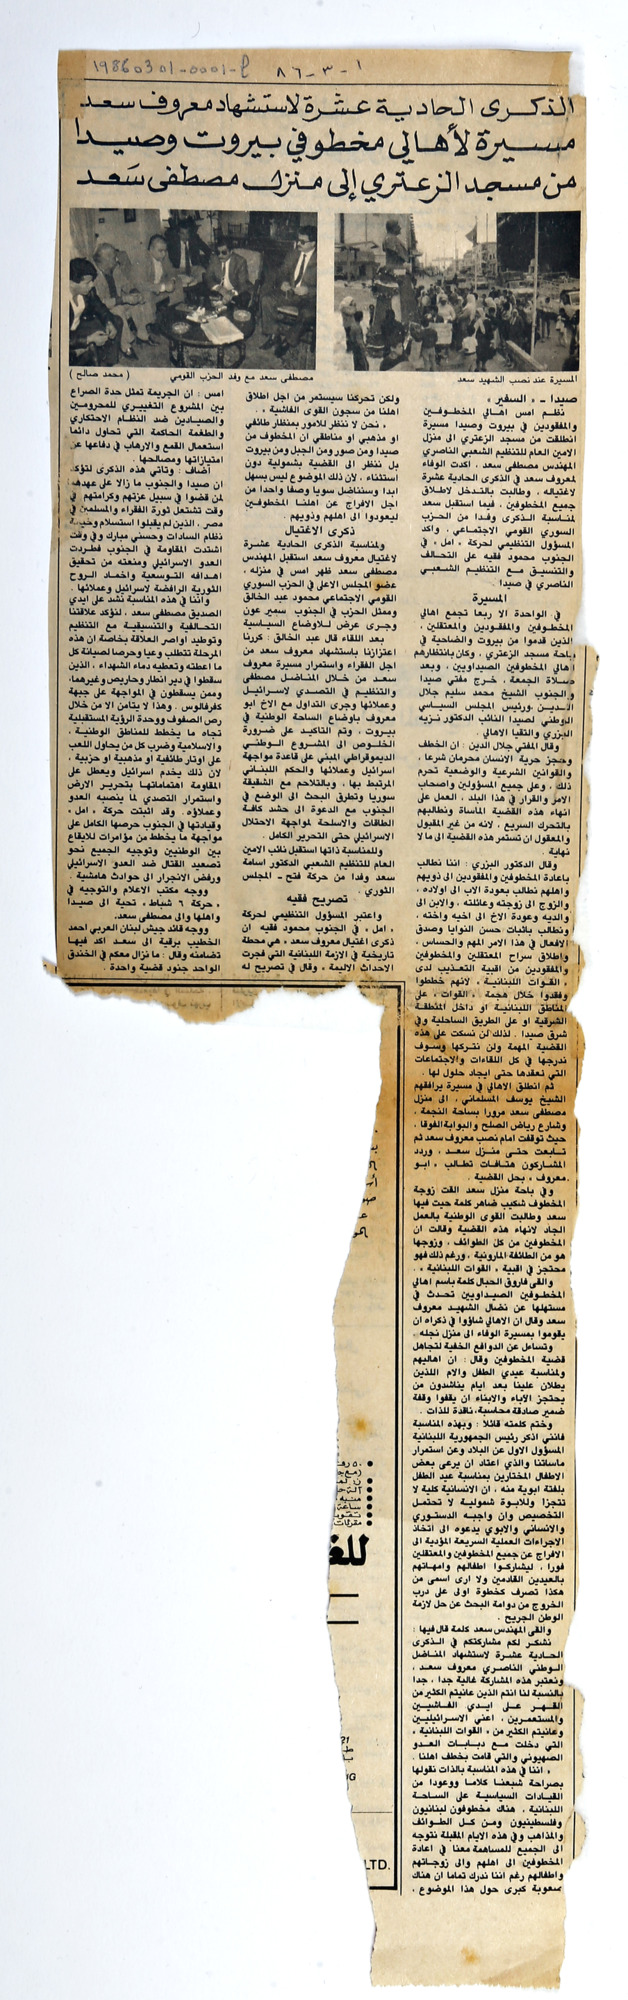 19860301-0001-م
١-٣-٨٦
الذكرى الحادية عشرة لاستشهاد معروف سعد
مسيرة لأهالي مخطوفي بيروت وصيدا
من مسجد الزعتري إلى منزل مصطفى سعد
المسيرة عند نصب الشهيد سعد
مصطفى سعد مع وفد الحزب القومي
( محمد صالح )
صيدا ـ « السفير »
نظم امس اهالي المخطوفين
والمفقودين في بيروت وصيدا مسيرة
انطلقت من مسجد الزعتري الى منزل
الامين العام للتنظيم الشعبي الناصري
المهندس مصطفى سعد ، اكدت الوفاء
لمعروف سعد في الذكرى الحادية عشرة
لاغتياله ، وطالبت بالتدخل لاطلاق
جميع المخطوفين . فيما استقبل سعد
لمناسبة الذكرى وفدا من الحزب
السوري القومي الاجتماعي . واكد
المسؤول التنظيمي لحركة « امل » في
الجنوب محمود فقيه على التحالف
والتنسيق مع التنظيم الشعبي
الناصري في صيدا .
المسيرة
في الواحدة الا ربعا تجمع اهالي
المخطوفين والمفقودين والمعتقلين ،
الذين قدموا من بيروت والضاحية في
باحة مسجد الزعتري ، وكان بانتظارهم
اهالي المخطوفين الصيداويين ، وبعد
صلاة الجمعة ، خرج مفتي صيدا
والجنوب الشيخ محمد سليم جلال
الدين ، ورئيس المجلس السياسي
الوطني لصيدا النائب الدكتور نزيه
البزري والتقيا الاهالي .
وقال المفتي جلال الدين : ان الخطف
وحجز حرية الانسان محرمان شرعا ،
والقوانين الشرعية والوضعية تحرم
ذلك ، وعلى جميع المسؤولين واصحاب
الامر والقرار في هذا البلد ، العمل على
انهاء هذه القضية المأساة ونطالبهم
بالتحرك السريع ، لانه من غير المقبول
والمعقول ان تستمر هذه القضية الى ما لا
نهاية .
وقال الدكتور البزري : اننا نطالب
باعادة المخطوفين والمفقودين الى ذويهم
واهلهم نطالب بعودة الاب الى اولاده ،
والزوج الى زوجته وعائلته ، والابن الى
والديه وعودة الاخ الى اخيه واخته ،
ونطالب باثبات حسن النوايا وصدق
الافعال في هذا الامر المهم والحساس ،
واطلاق سراح المعتقلين والمخطوفين
والمفقودين من اقبية التعذيب لدى
« القوات اللبنانية » لانهم خطفوا
وفقدوا خلال هجمة « القوات » على
المناطق اللبنانية او داخل المنطقة
الشرقية او على الطريق الساحلية وفي
شرق صيدا . لذلك لن نسكت على هذه
القضية المهمة ولن نتركها وسوف
ندرجها في كل اللقاءات والاجتماعات
التي نعقدها حتى ايجاد حلول لها .
ثم انطلق الاهالي في مسيرة يرافقهم
الشيخ يوسف المسلماني ، الى منزل
مصطفى سعد مرورا بساحة النجمة ،
وشارع رياض الصلح والبوابة الفوقا ،
حيث توقفت امام نصب معروف سعد ثم
تابعت حتى منزل سعد ، وردد
المشاركون هتافات تطالب « ابو
معروف » بحل القضية .
وفي باحة منزل سعد القت زوجة
المخطوف شكيب ضاهر كلمة حيت فيها
سعد وطالبت القوى الوطنية بالعمل
الجاد لانهاء هذه القضية وقالت ان
المخطوفين من كل الطوائف ، وزوجها
هو من الطائفة المارونية ، ورغم ذلك فهو
محتجز في اقبية « القوات اللبنانية » .
والقى فاروق الحبال كلمة باسم اهالي
المخطوفين الصيداويين تحدث في
مستهلها عن نضال الشهيد معروف
سعد وقال ان الاهالي شاؤوا في ذكراه ان
يقوموا بمسيرة الوفاء الى منزل نجله .
وتساءل عن الدوافع الخفية لتجاهل
قضية المخطوفين وقال : ان اهاليهم
ولمناسبة عيدي الطفل والام اللذين
يطلان علينا بعد ايام يناشدون من
يحتجز الآباء والابناء ان يقفوا وقفة
ضمير صادقة محاسبة، ناقدة للذات .
وختم كلمته قائلا : وبهذه المناسبة
فانني اذكر رئيس الجمهورية اللبنانية
المسؤول الاول عن البلاد وعن استمرار
مأساتنا والذي اعتاد ان يرعى بعض
الاطفال المختارين بمناسبة عيد الطفل
بلفتة ابوية منه ، ان الانسانية كلية لا
تتجزا وللابوة شمولية لا تحتمل
التخصيص وان واجبه الدستوري
والانساني والابوي يدعوه الى اتخاذ
الاجراءات العملية السريعة المؤدية الى
الافراج عن جميع المخطوفين والمعتقلين
فورا ، ليشاركوا اطفالهم وامهاتهم
بالعيدين القادمين ولا ارى اسمى من
هكذا تصرف كخطوة اولى على درب
الخروج من دوامة البحث عن حل لازمة
الوطن الجريح .
والقى المهندس سعد كلمة قال فيها :
نشكر لكم مشاركتكم في الذكرى
الحادية عشرة لاستشهاد المناضل
الوطني الناصري معروف سعد ،
ونعتبر هذه المشاركة غالية جدا ، جدا
بالنسبة لنا انتم الذين عانيتم الكثير من
القهر على ايدي الفاشيين
والمستعمرين ، اعني الاسرائيليين
وعانيتم الكثير من « القوات اللبنانية »
التي دخلت مع دبابات العدو
الصهيوني والتي قامت بخطف اهلنا .
« اننا في هذه المناسبة بالذات نقولها
بصراحة شبعنا كلاما ووعودا من
القيادات السياسية على الساحة
اللبنانية . هناك مخطوفون لبنانيون
وفلسطينيون ومن كل الطوائف
والمذاهب وفي هذه الايام المقبلة نتوجه
الى الجميع للمساهمة معنا في اعادة
المخطوفين الى اهلهم والى زوجاتهم
واطفالهم رغم اننا ندرك تماما ان هناك
صعوبة كبرى حول هذا الموضوع ،
ولكن تحركنا سيستمر من اجل اطلاق
اهلنا من سجون القوى الفاشية » .
« نحن لا ننظر للامور بمنظار طائفي
او مذهبي او مناطقي ان المخطوف من
صيدا ومن صور ومن الجبل ومن بيروت
بل ننظر الى القضية بشمولية دون
استثناء ، لان ذلك الموضوع ليس بسهل
ابدا وسنناضل سويا وصفا واحدا من
اجل الافراج عن اهلنا المخطوفين
ليعودوا الى اهلهم وذويهم .
ذكرى الاغتيال
ولمناسبة الذكرى الحادية عشرة
لاغتيال معروف سعد استقبل المهندس
مصطفى سعد ظهر امس في منزله ،
عضو المجلس الاعلى في الحزب السوري
القومي الاجتماعي محمود عبد الخالق
وممثل الحزب في الجنوب سمير عون
وجرى عرض للاوضاع السياسية
بعد اللقاء قال عبد الخالق : كررنا
اعتزازنا باستشهاد معروف سعد من
اجل الفقراء واستمرار مسيرة معروف
سعد من خلال المناضل مصطفى
والتنظيم في التصدي لاسرائيل
وعملائها وجرى التداول مع الاخ ابو
معروف باوضاع الساحة الوطنية في
بيروت ، وتم التاكيد على ضرورة
الخلوص الى المشروع الوطني
الديموقراطي المبني على قاعدة مواجهة
اسرائيل وعملائها والحكم اللبناني
المرتبط بها ، وبالتلاحم مع الشقيقة
سوريا وتطرق البحث الى الوضع في
الجنوب مع الدعوة الى حشد كافة
الطاقات والاسلحة لمواجهة الاحتلال
الاسرائيلي حتى التحرير الكامل .
وللمناسبة ذاتها استقبل نائب الامين
العام للتنظيم الشعبي الدكتور اسامة
سعد وفدا من حركة فتح ـ المجلس
الثوري .
تصريح فقيه
واعتبر المسؤول التنظيمي لحركة
« امل » في الجنوب محمود فقيه ان
ذكرى اغتيال معروف سعد « هي محطة
تاريخية في الازمة اللبنانية التي فجرت
الاحداث الاليمة » وقال في تصريح له
امس : ان الجريمة تمثل حدة الصراع
بين المشروع التغييري للمحرومين
والصيادين ضد النظام الاحتكاري
والطغمة الحاكمة التي تحاول دائما
استعمال القمع والارهاب في دفاعها عن
امتيازاتها ومصالحها .
اضاف : وتاتي هذه الذكرى لتؤكد
ان صيدا والجنوب ما زالا على عهدهما
لمن قضوا في سبيل عزتهم وكرامتهم في
وقت تشتعل ثورة الفقراء والمسلمين في
مصر ، الذين لم يقبلوا استسلام وخيبة
نظام السادات وحسني مبارك وفي وقت
اشتدت المقاومة في الجنوب فطردت
العدو الاسرائيلي ومنعته من تحقيق
اهدافه التوسعية واخماد الروح
الثورية الرافضة لاسرائيل وعملائها .
واننا في هذه المناسبة نشد على ايدي
الصديق مصطفى سعد ، لنؤكد علاقتنا
التحالفية والتنسيقية مع التنظيم
وتوطيد اواصر العلاقة بخاصة ان هذه
المرحلة تتطلب وعيا وحرصا لصيانة كل
ما اعطته وتعطيه دماء الشهداء ، الذين
سقطوا في دير انطار وحاريص وغيرهما،
وممن يسقطون في المواجهة على جبهة
كفرفالوس . وهذا لا يتامن الا من خلال
رص الصفوف ووحدة الرؤية المستقبلية
تجاه ما يخطط للمناطق الوطنية ،
والاسلامية وضرب كل من يحاول اللعب
على اوتار طائفية او مذهبية او حزبية ،
لان ذلك يخدم اسرائيل ويعطل على
المقاومة اهتماماتها بتحرير الارض
واستمرار التصدي لما ينصبه العدو
وعملاؤه . وقد اثبتت حركة « امل »
وقيادتها في الجنوب حرصها الكامل على
مواجهة ما يخطط من مؤامرات للايقاع
بين الوطنيين وتوجيه الجميع نحو
تصعيد القتال ضد العدو الاسرائيلي
ورفض الانجرار الى حوادث هامشية .
ووجه مكتب الاعلام والتوجيه في
« حركة ٦ شباط » تحية الى صيدا
واهلها والى مصطفى سعد.
ووجه قائد جيش لبنان العربي احمد
الخطيب برقية الى سعد اكد فيها
تضامنه وقال : ما نزال معكم في الخندق
الواحد جنود قضية واحدة .
للغ
LTD.